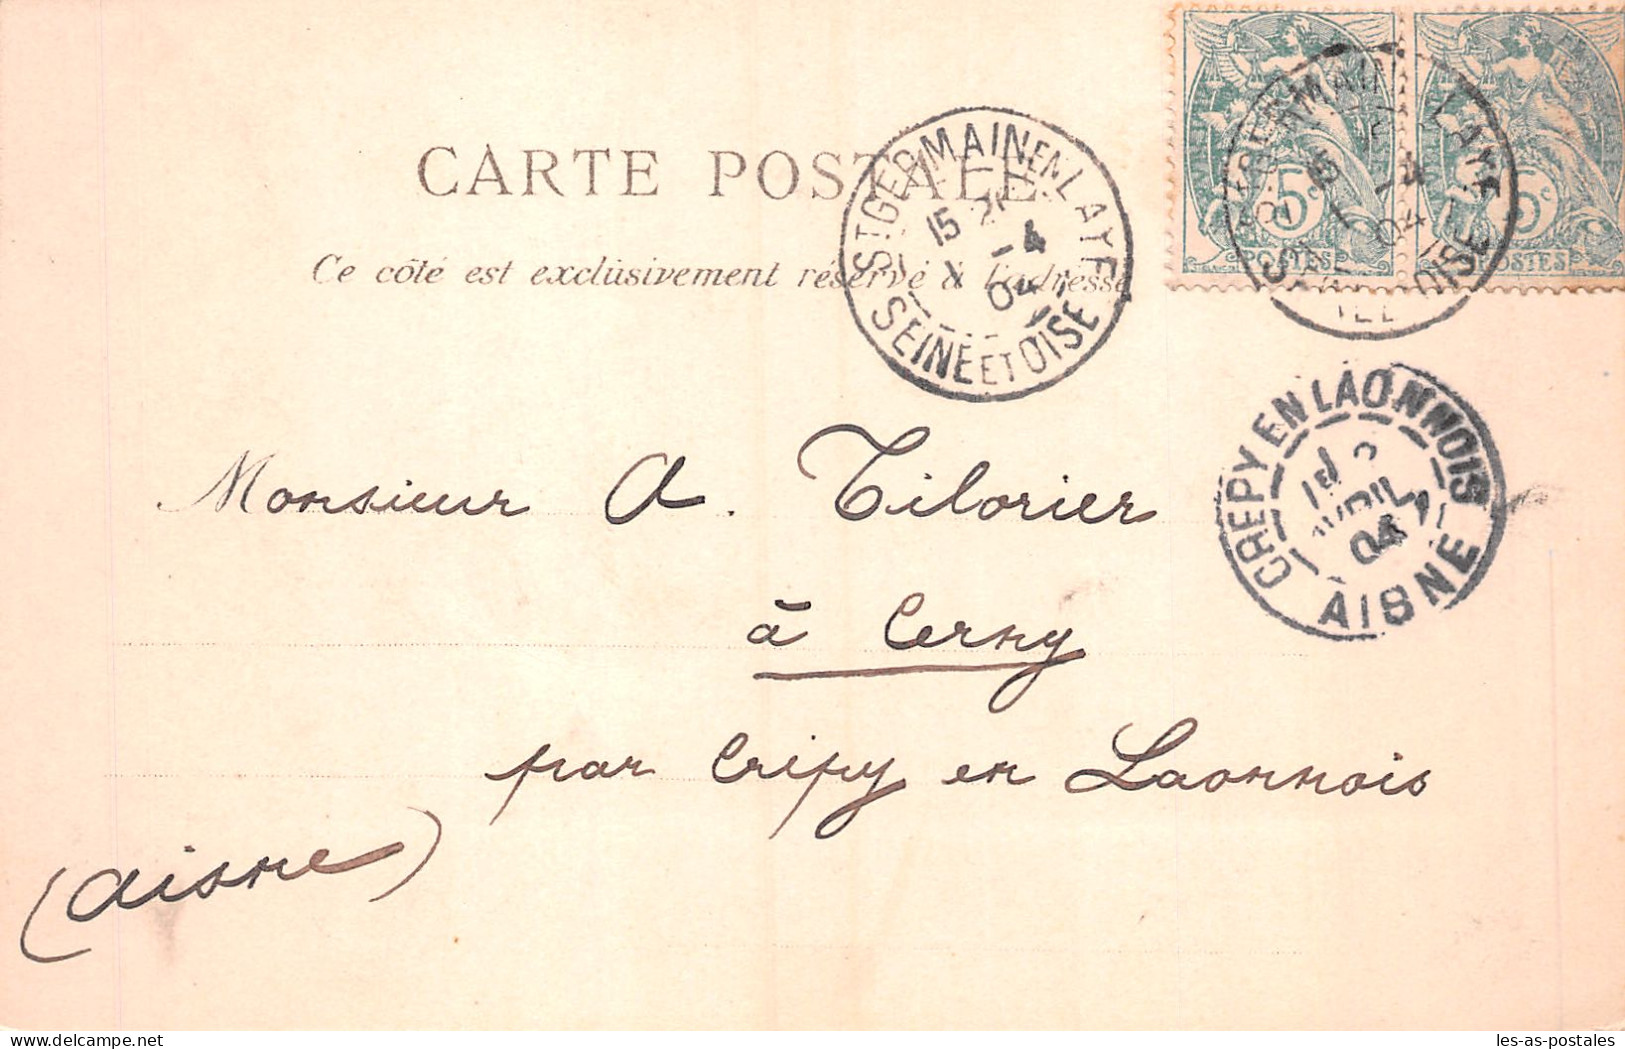 CARTE POSTALE
Ce côté est exclusivement réservé à l'adresse
ST GERMAIN EN LAYE
15
1 -4
04
SEINE ET OISE
5c 5c
POSTES POSTES
CREPY EN LAONNOIS
AVRIL
04
AISNE
Monsieur A. Tilorier
à Cerny
par Crépy en Laonnois
(Aisne)
les-as-postales